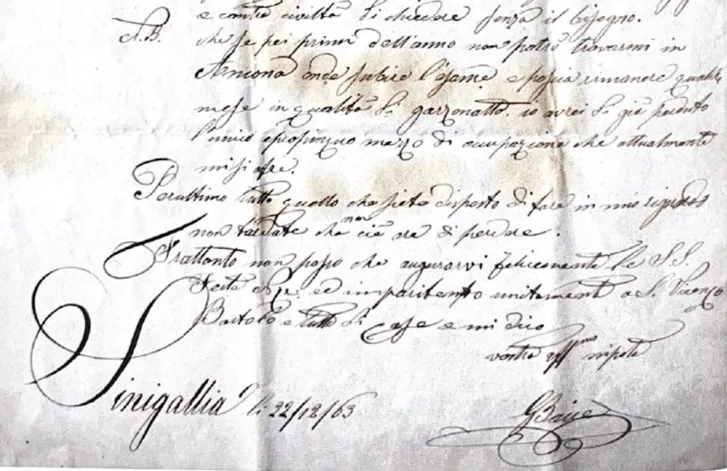 e contro civiltà di chiedere senza il bisogno.
N.B. che se pei primi dell'anno non potrò trovarmi in
Ancona onde subire l'esame e poscia rimanere qualche
mese in qualità di garzonotto. io avrei di già perduto
l'unico mezzo di occupazione che attualmente
mi si offre.
Per ultimo tutto quello che siete disposto di fare in mio riguardo
non tardate che non c'è ore di perdere.
Frattanto non posso che augurarvi felicemente le S.S.
Feste ed unitamente a
Bartolo e tutti di casa e mi dico
vostro aff.mo nipote
Sinigallia li 22/12/63